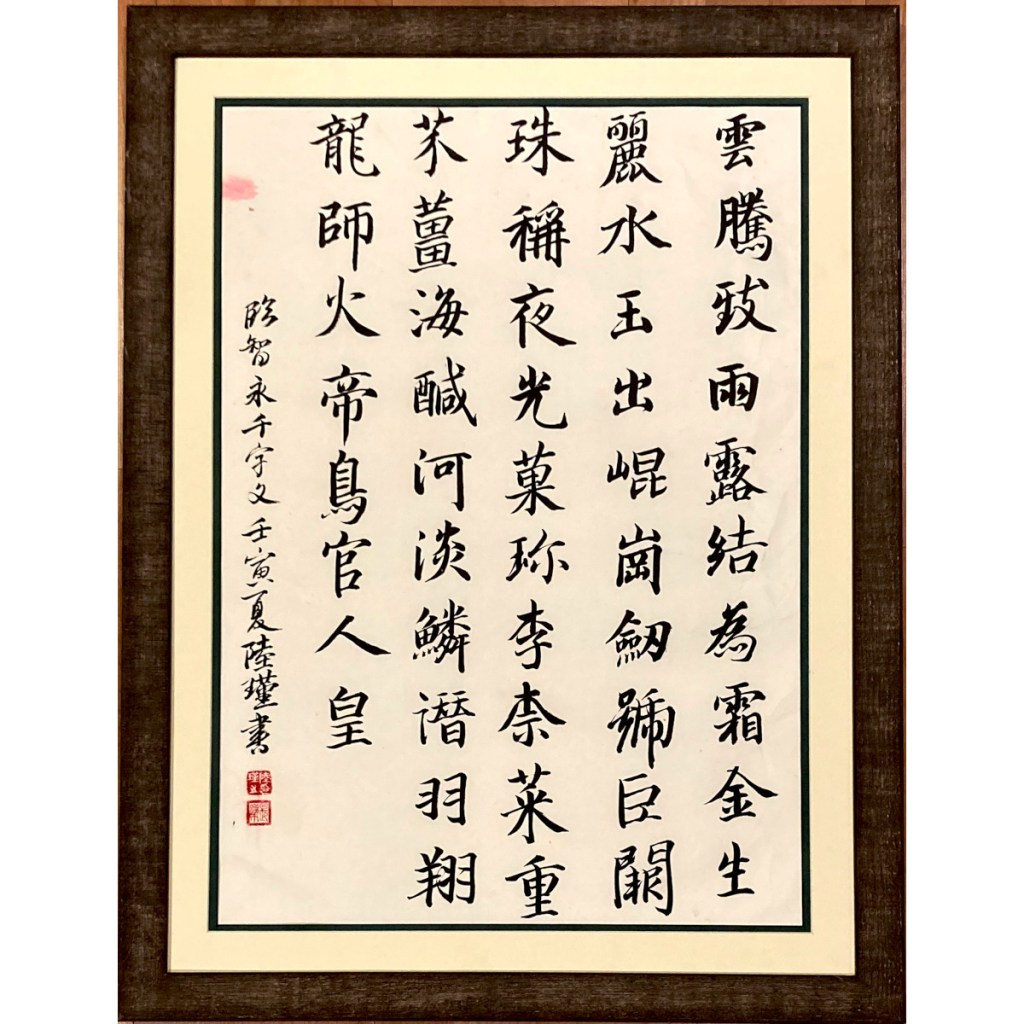 雲騰致雨露結為霜金生
麗水玉出崐崗劒號巨闕
珠稱夜光菓珎李柰菜重
芥薑海醎河淡鱗潛羽翔
龍師火帝鳥官人皇
臨智永千字文壬寅夏陸瑾書